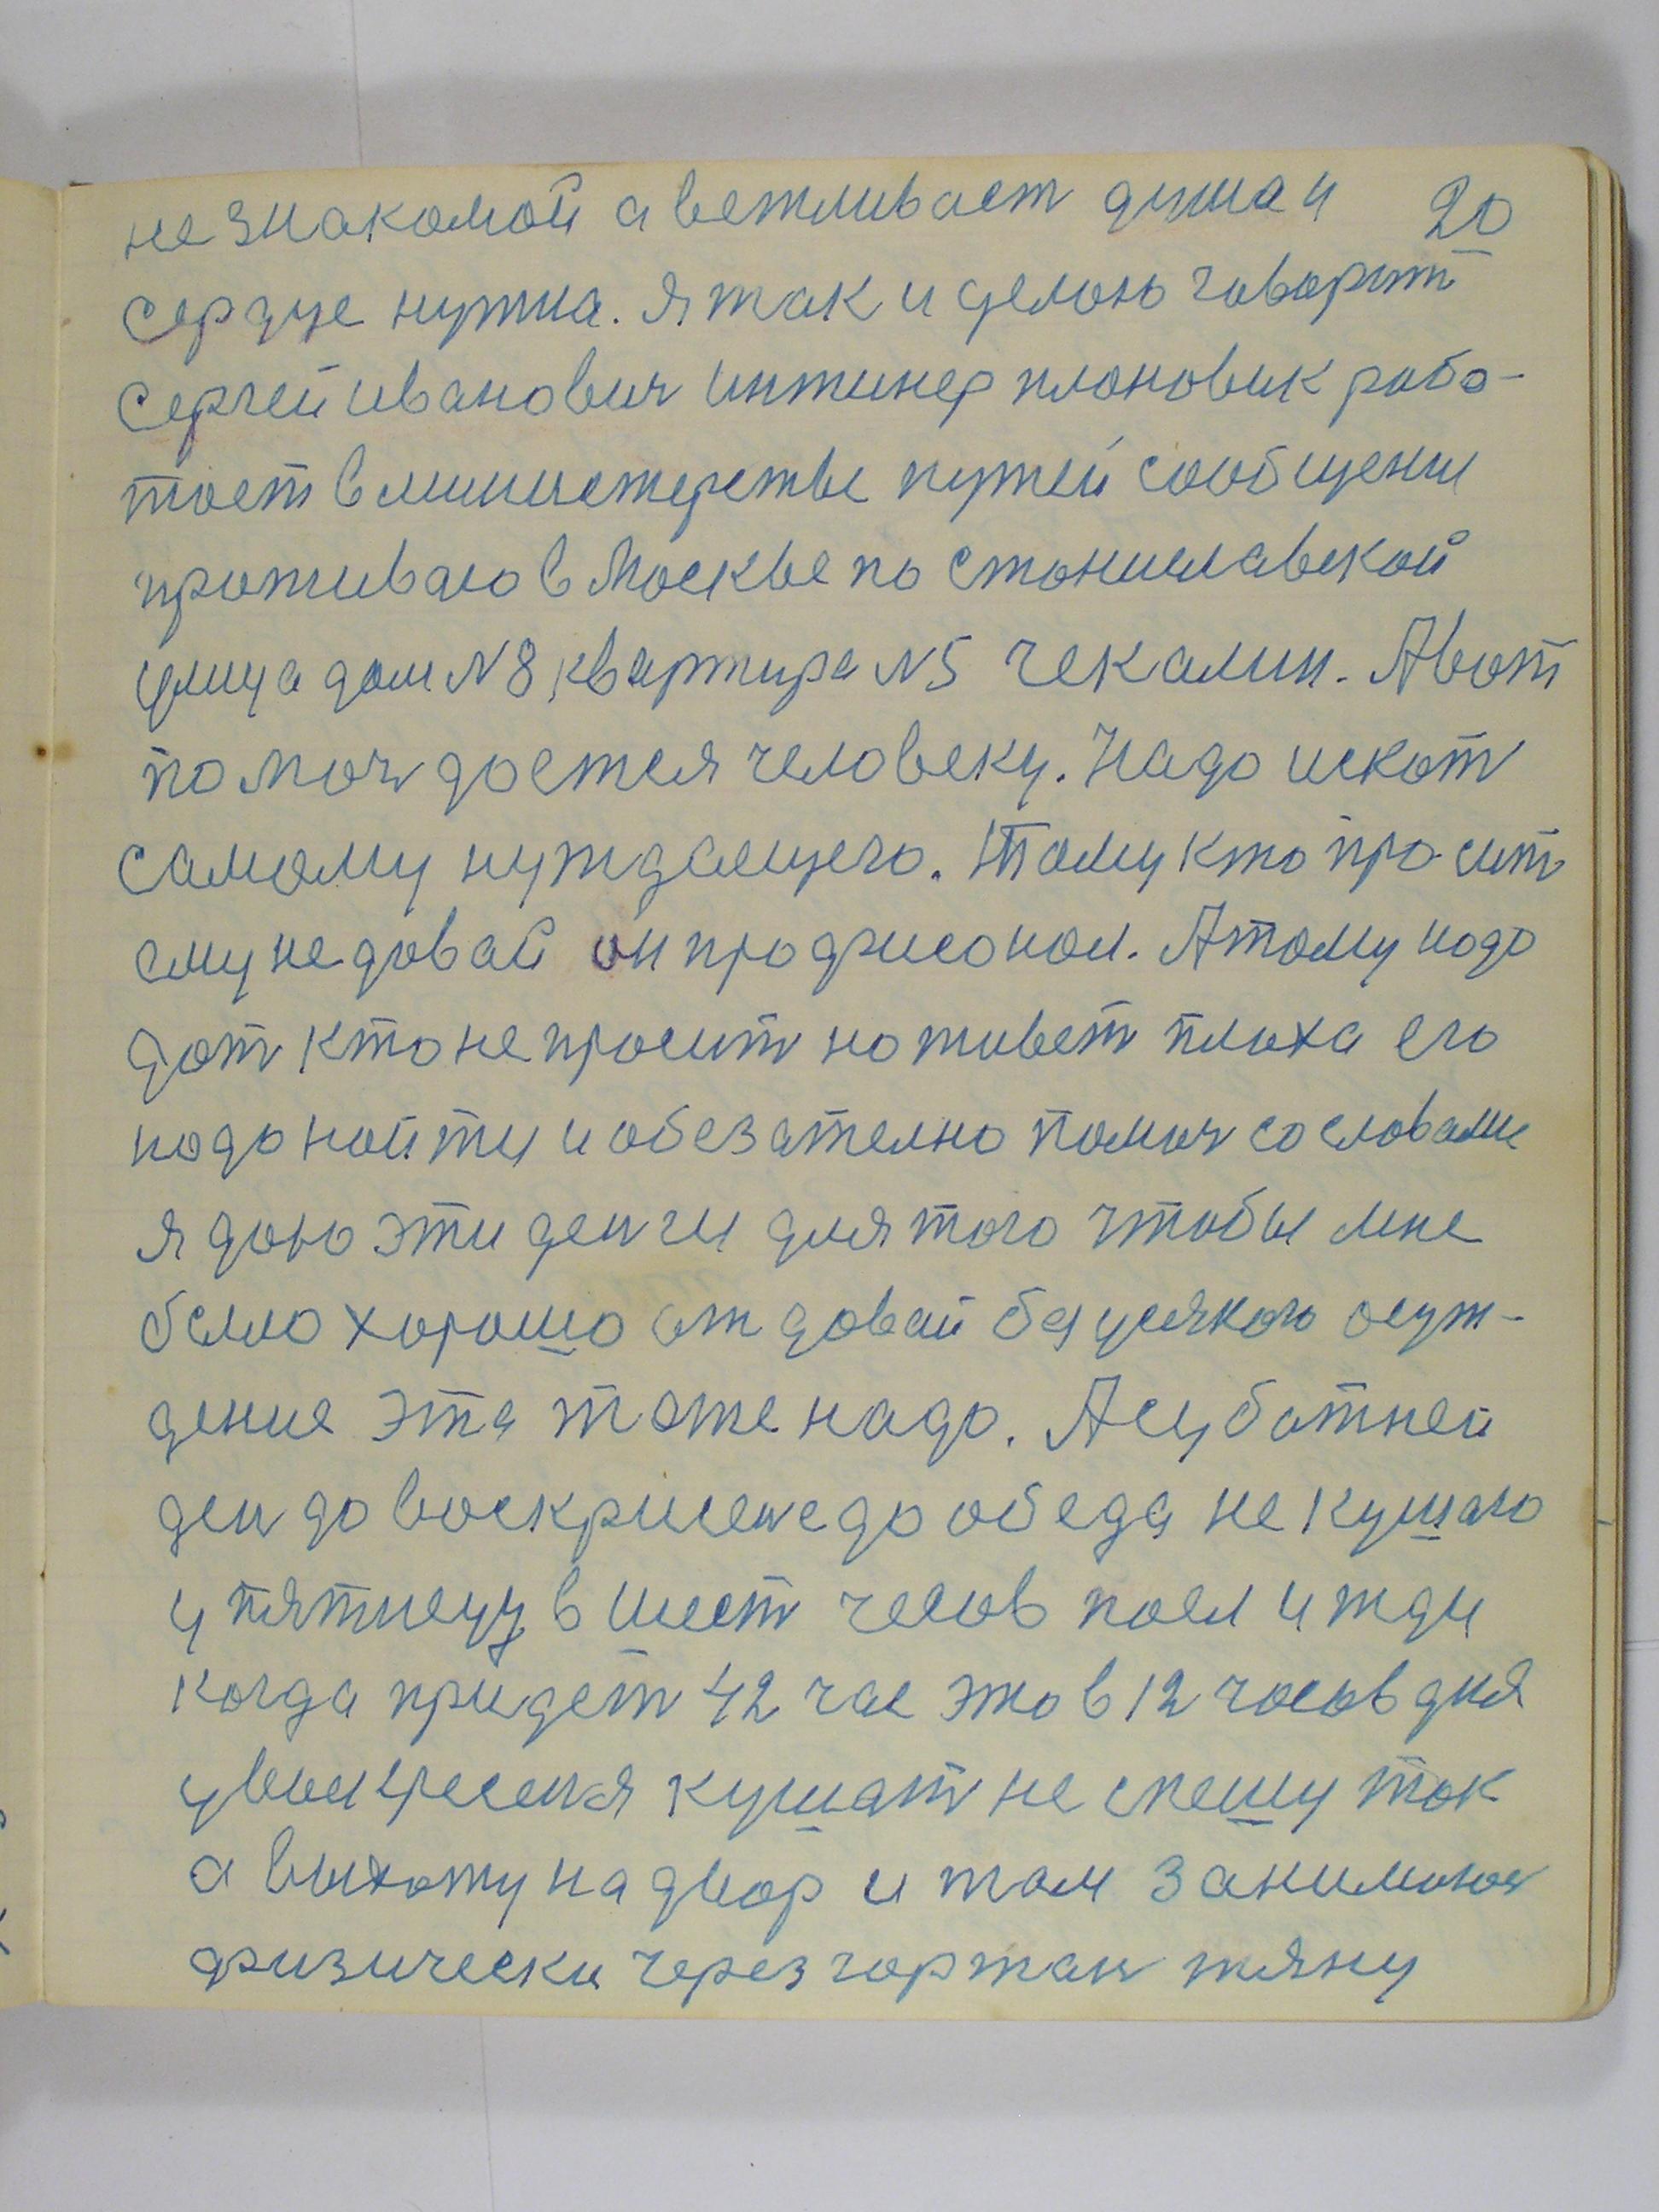 незнакомой а ветливает душа и 20
сердце нужна. Я так и делою говорит
Сергей иванович Инженер плоновик рабо-
тоет в министерстве путей сообщении
проживаю в Москве по стониславской
улица дом N8, квартира N5 чекалин. А вот
помоч доется человеку. Надо искот
самому нуждоещего. Тому кто просит
ему не довай он профисонол. А тому надо
дот кто не просит но живет плоха его
надо нойти и обезателно помоч со словами
я даю эти денги для того чтобы мне
было хорошо отдовай без усякого осуж-
дения эта тоже надо. А суботней
ден до воскрисене до обеда не кушаю
у пятницу в шест чесов поел и жди
когда придет 42 час это в 12 чосов дня
у воскресеня кушат не спешу так
а выхожу на двор и там занимаюс
физически через гортан тяну